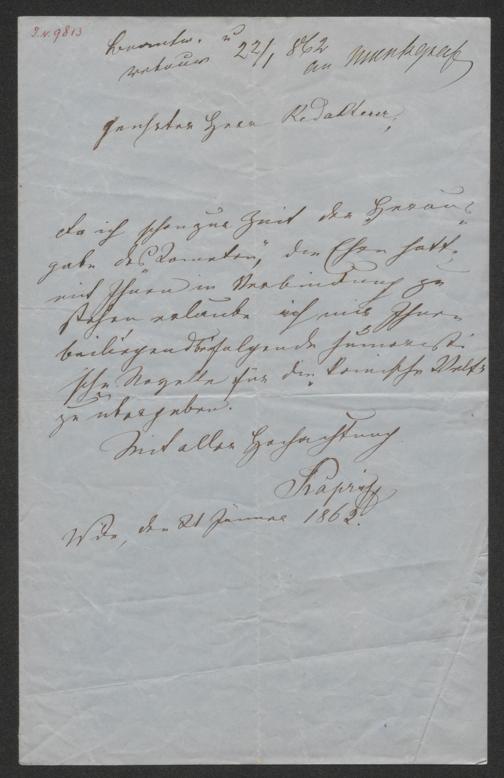 I.N. 9813
Beantw. u
retour 22/1 862
an Markgraf
geehrter Herr Redakteur,
da ich schon zur Zeit der Heraus=
gabe des "Kometen", die Ehre hatte
mit Ihnen in Verbindung zu
stehen erlaube ich mir Ihnen
beiliegend folgende humoristi
sche Novelle für die "komische Welt"
zu übergeben.
Mit aller Hochachtung
Wien, den 21 Jänner 1862.